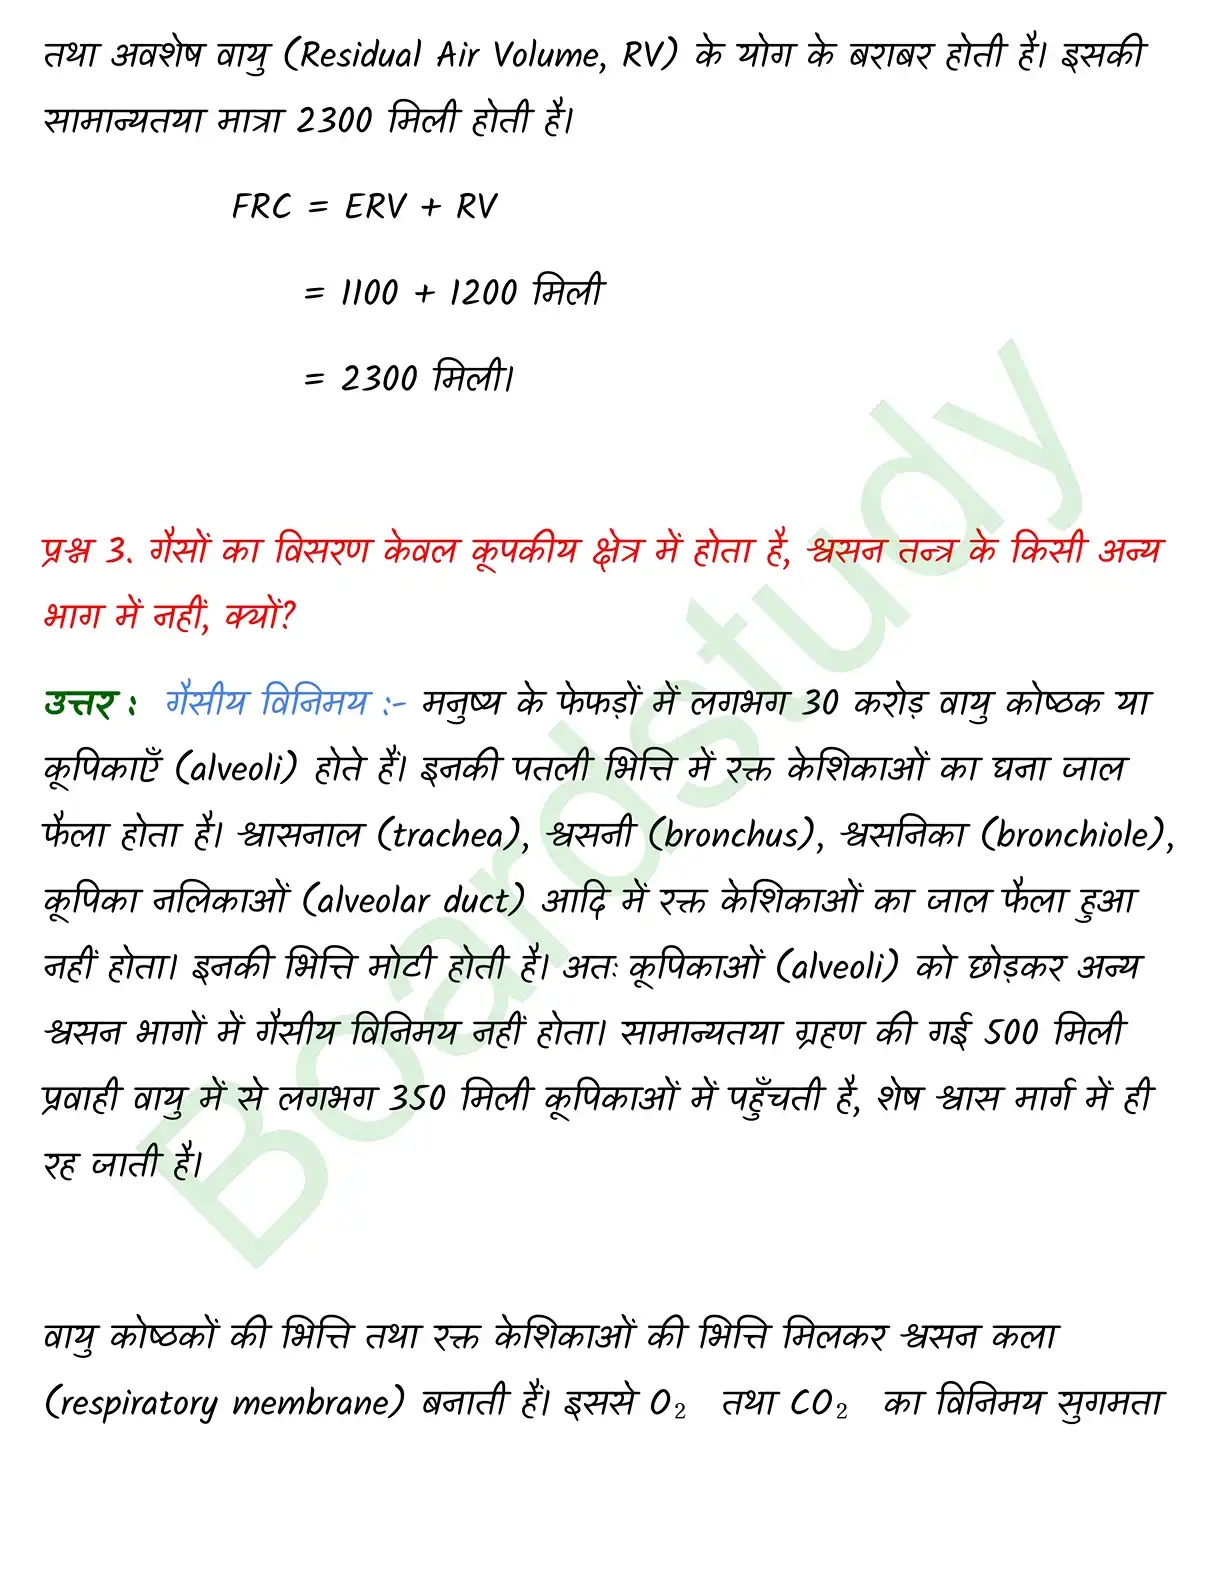 तथा अवशेष वायु (Residual Air Volume, RV) के योग के बराबर होती है। इसकी
सामान्यतया मात्रा 2300 मिली होती है।
FRC = ERV + RV
= 1100 + 1200 मिली
= 2300 मिली।
प्रश्न 3. गैसों का विसरण केवल कूपकीय क्षेत्र में होता है, श्वसन तन्त्र के किसी अन्य
भाग में नहीं, क्यों?
उत्तर : गैसीय विनिमय :- मनुष्य के फेफड़ों में लगभग 30 करोड़ वायु कोष्ठक या
कूपिकाएँ (alveoli) होते हैं। इनकी पतली भित्ति में रक्त केशिकाओं का घना जाल
फैला होता है। श्वासनाल (trachea), श्वसनी (bronchus), श्वसनिका (bronchiole),
कूपिका नलिकाओं (alveolar duct) आदि में रक्त केशिकाओं का जाल फैला हुआ
नहीं होता। इनकी भित्ति मोटी होती है। अतः कूपिकाओं (alveoli) को छोड़कर अन्य
श्वसन भागों में गैसीय विनिमय नहीं होता। सामान्यतया ग्रहण की गई 500 मिली
प्रवाही वायु में से लगभग 350 मिली कूपिकाओं में पहुँचती है, शेष श्वास मार्ग में ही
रह जाती है।
वायु कोष्ठकों की भित्ति तथा रक्त केशिकाओं की भित्ति मिलकर श्वसन कला
(respiratory membrane) बनाती हैं। इससे O₂ तथा CO₂ का विनिमय सुगमता
Boardstudy